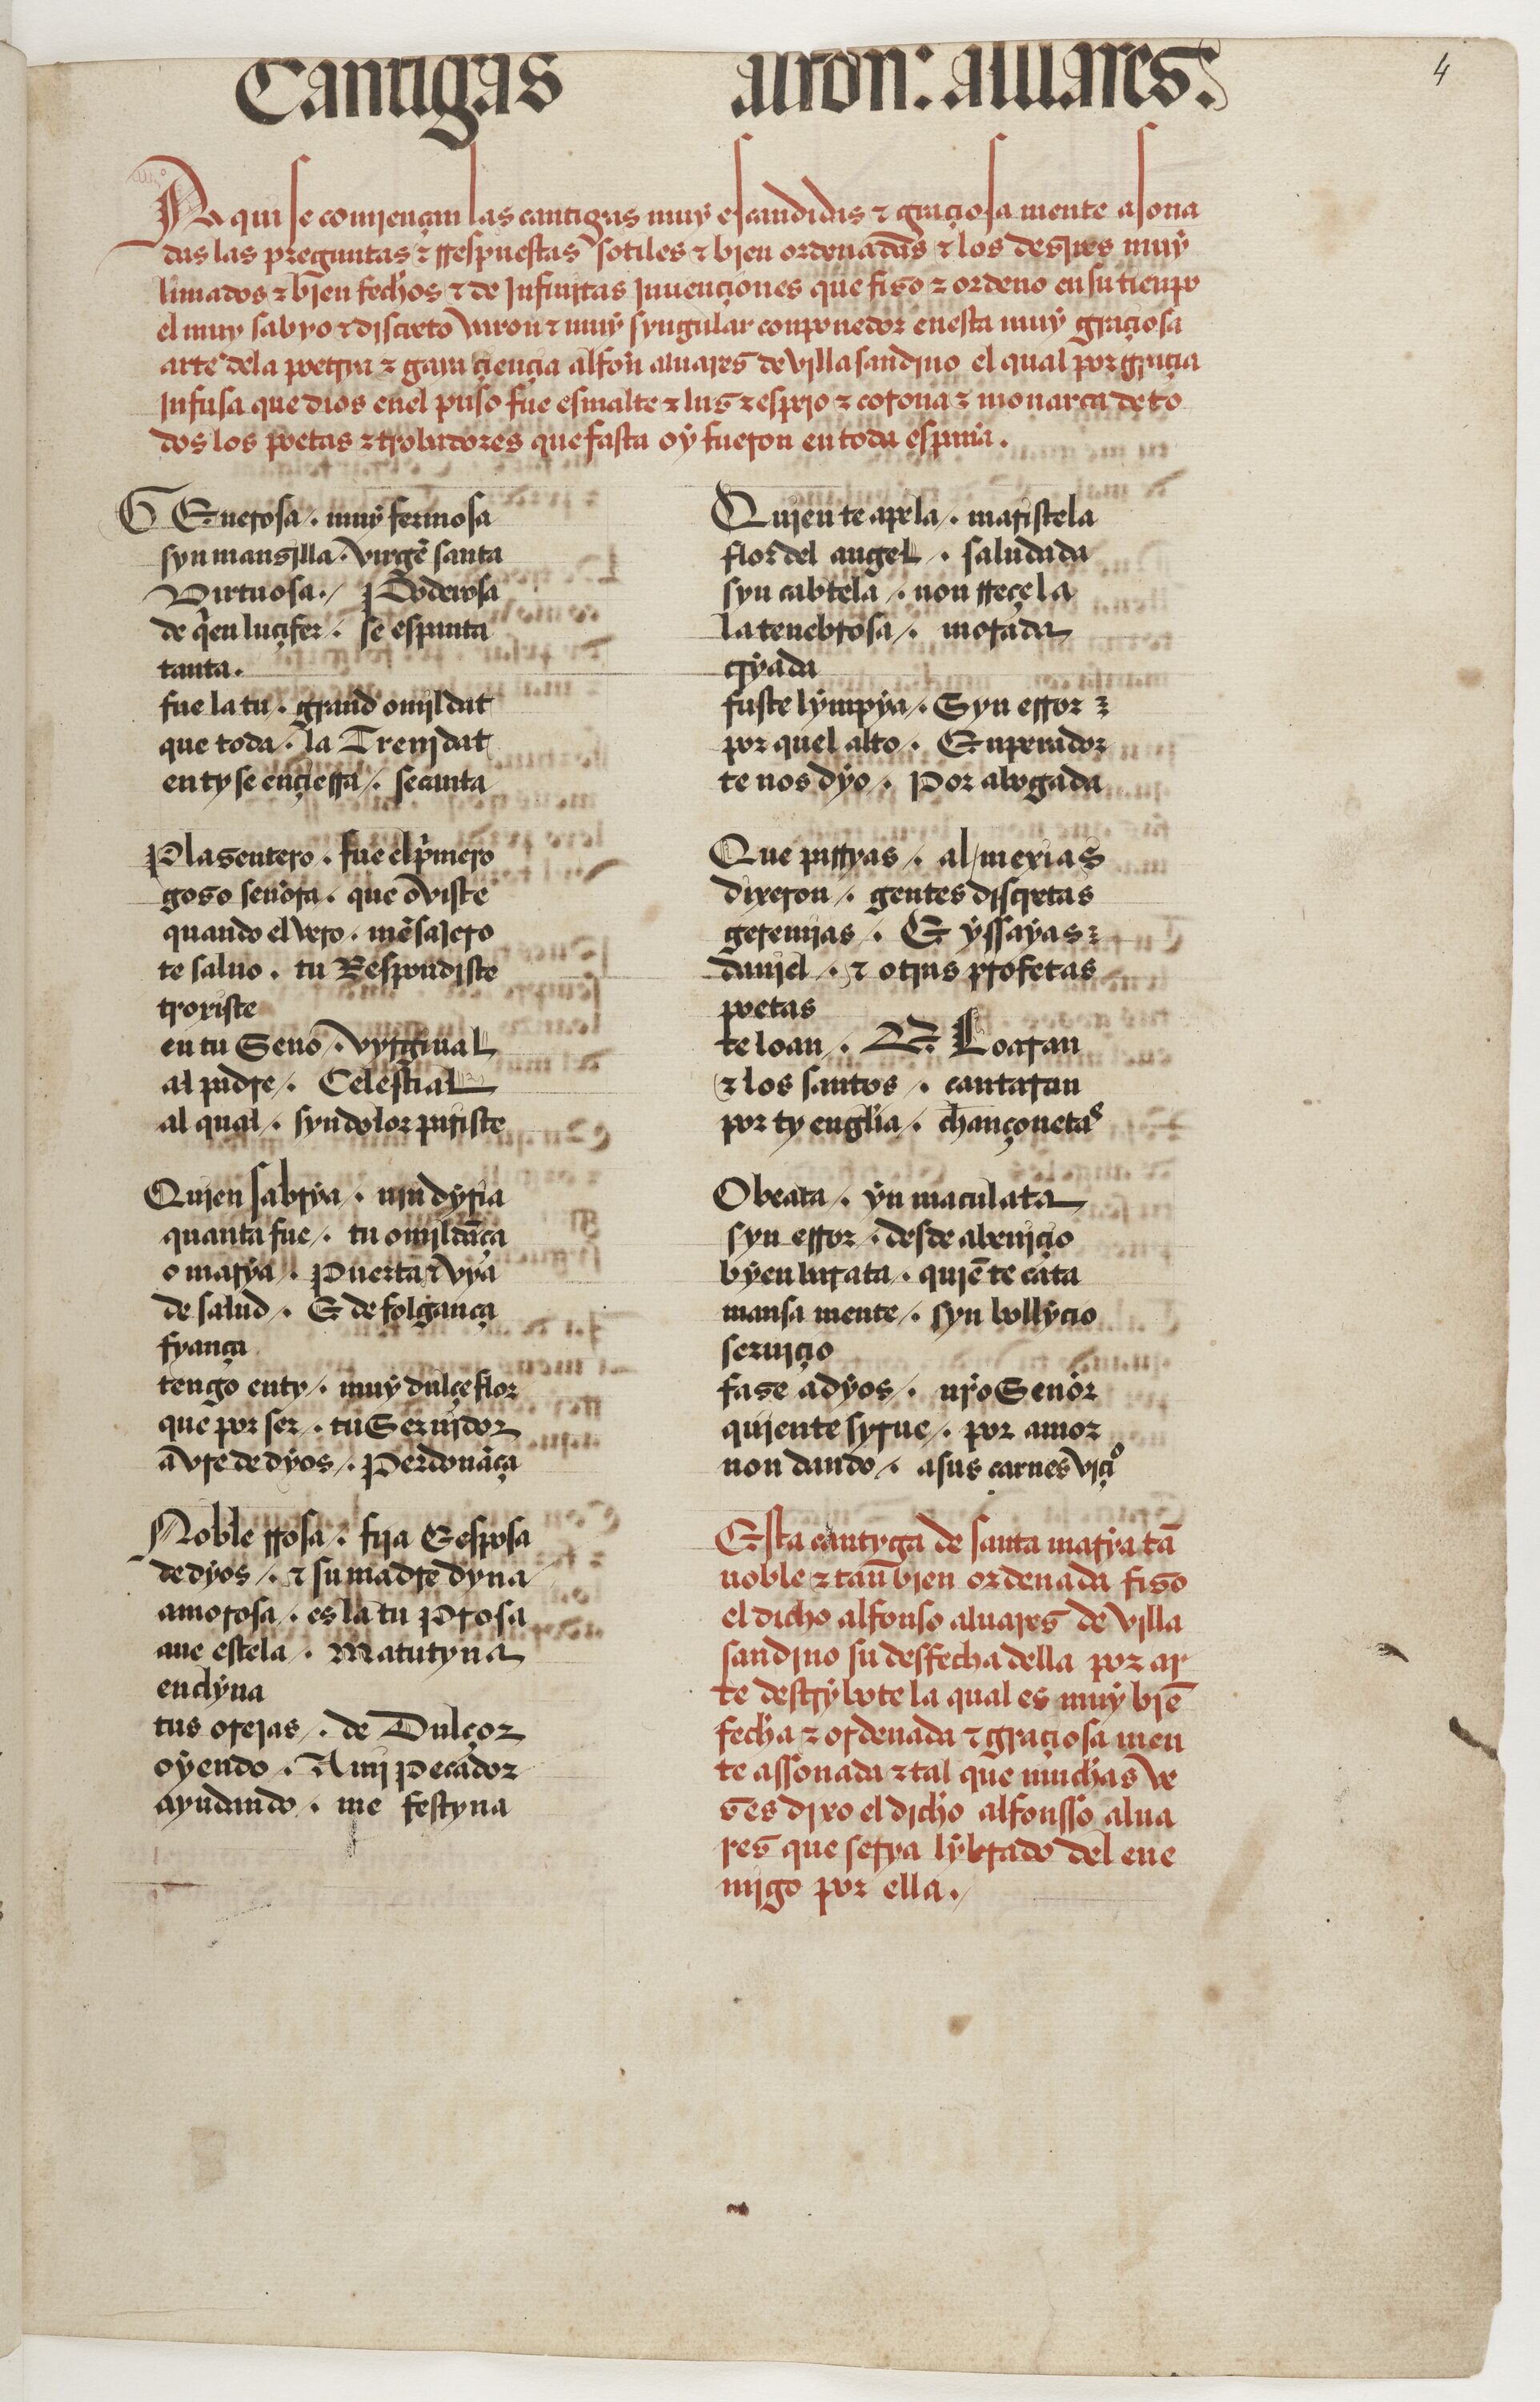 Cantigas
alfon: aluares.
4
Aqui se comjençan las cantigas muy escandidas & graçiosa mente asona
das las preguntas & rrespuestas sotiles & bien ordenadas & los desires muy
limados & bien fechos & de Infinitas Inuençiones que fiso & ordeno en su tienpo
el muy sabyo & discreto varon & muy syngular conponedor en esta muy graçiosa
arte dela poetria & gaya çiençia alfon aluares de villa sandino el qual por graçia
Infusa que dios en el puso fue esmalte & lus & espejo & corona & monarca de to
dos los poetas & trobadores que fasta oy fueron en toda españa.
GEnerosa /. muy fermosa
syn mansilla . virgẽ santa
Virtuosa ./ Poderosa
de q̃en luçifer /. se espanta
tanta.
fue la tu /. grand omjldat
que toda /. la Trenjdat
en ty se ençierra /. se canta
Plasentero . fue el p̃mero
goso señora /. que oviste
quando el vero . mẽsajero
te saluo . tu Respondiste
troxiste
en tu Seno /. vyrginal
al padre /. Celestial
al qual /. syn dolor pariste
Quien sabrya /. njn dyria
quanta fue /. tu omjldãça
o marya /. Puerta & vya
de salud /. E de folgança
fyança
tengo en ty /. muy dulçe flor
que por ser /. tu Seruidor
avre de dyos /. Perdonãça
Noble rrosa /. fija E esposa
de dyos /. & su madre dyna
amorosa /. es la tu Prosa
aue estela /. Matutyna
enclyna
tus orejas /. de Dulçor
oyendo /. A mj pecador
ayudando /. me festyna
Quien te apela /. maristela
flor del angel /. saludada
syn cabtela /. non rreçela
la tenebrosa /. morada
cryada
fuste lympya /. Syn error
por quel alto /. Enperador
te nos dyo /. Por abogada
Que parryas /. al mexias
dixeron /. gentes discretas
geremjas /. E yssayas
daniel /. & otras profetas
poetas
te loan /. & Loaran
& los santos /. cantaran
por ty en gl̃ia /. chançonetas
O beata /. yn maculata
syn error /. desde abeniçio
byen barata . quiẽ te cata
mansa mente /. syn bollycio
seruiçio
fase a dyos /. nr̃o Señor
quien te syrue /. por amor
non dando /. a sus carnes viçio
Esta cantyga de santa marya tã
noble & tan bien ordenada fiso
el dicho alfonso aluares de villa
sandino su desfecha della por ar
te destrybote la qual es muy biẽ
fecha & ordenada & graçiosa men
te assonada & tal que muchas ve
ses dixo el dicho alfonsso alua
res que serya lybrado del ene
migo por ella .